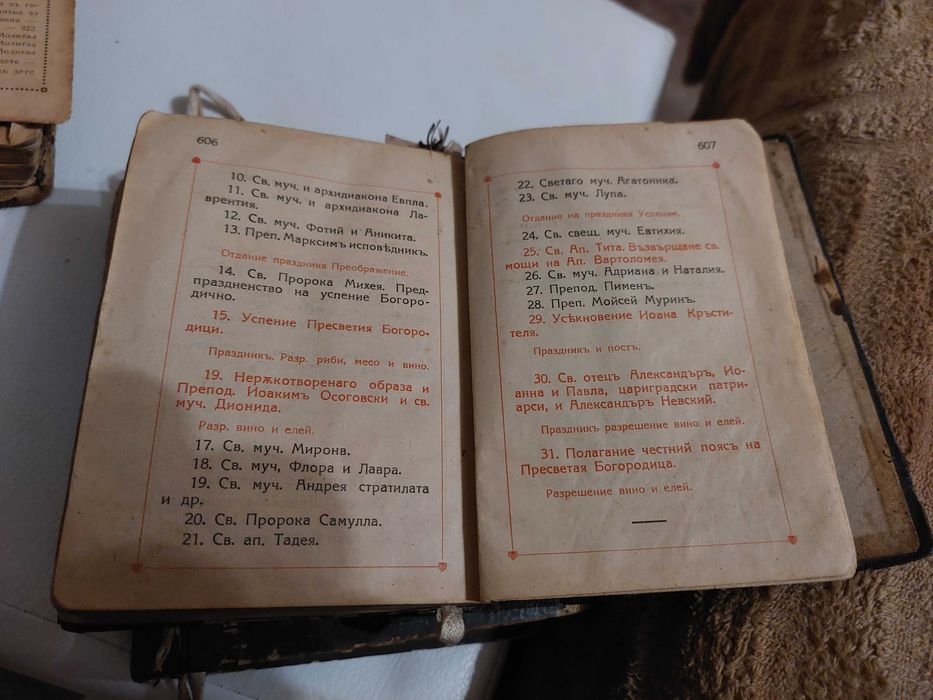 въ го-
литва за
вания —
— 922
Молитва
Молитва
Молитва
дете —
дете
606
10. Св. муч. и архидиакона Евпла.
11. Св. муч. и архидиакона Ла-
врентия.
12. Св. муч. Фотий и Аникита.
13. Преп. Марксимъ исповѣдникъ.
Отдание праздника Преображение.
14. Св. Пророка Михея. Пред-
праздненство на успение Богоро-
дично.
15. Успение Пресветия Богоро-
дици.
Праздникъ. Разр. риби, месо и вино.
19. Нержкотворенаго образа и
Препод. Иоакимъ Осоговски и св.
муч. Дионида.
Разр. вино и елей.
17. Св. муч. Миронв.
18. Св. муч, Флора и Лавра.
19. Св. муч. Андрея стратилата
и др.
20. Св. Пророка Самулла.
21. Св. ап. Тадея.
607
22. Светаго муч. Агатоника.
23. Св. муч. Лупа.
Отдание на праздника Успение.
24. Св. свещ. муч. Евтихия.
25. Св. Ап. Тита. Възвърщане св.
мощи на Ап. Вартоломея.
26. Св. муч. Адриана и Наталия.
27. Препод. Пименъ.
28. Преп. Мойсей Муринъ.
29. Усѣкновение Иоана Кръсти-
теля.
Праздникъ и постъ.
30. Св. отецъ Александъръ, Ио-
анна и Павла, цариградски патри-
арси, и Александъръ Невский.
Праздникъ разрешение вино и елей.
31. Полагание честний поясъ на
Пресветая Богородица.
Разрешение вино и елей.